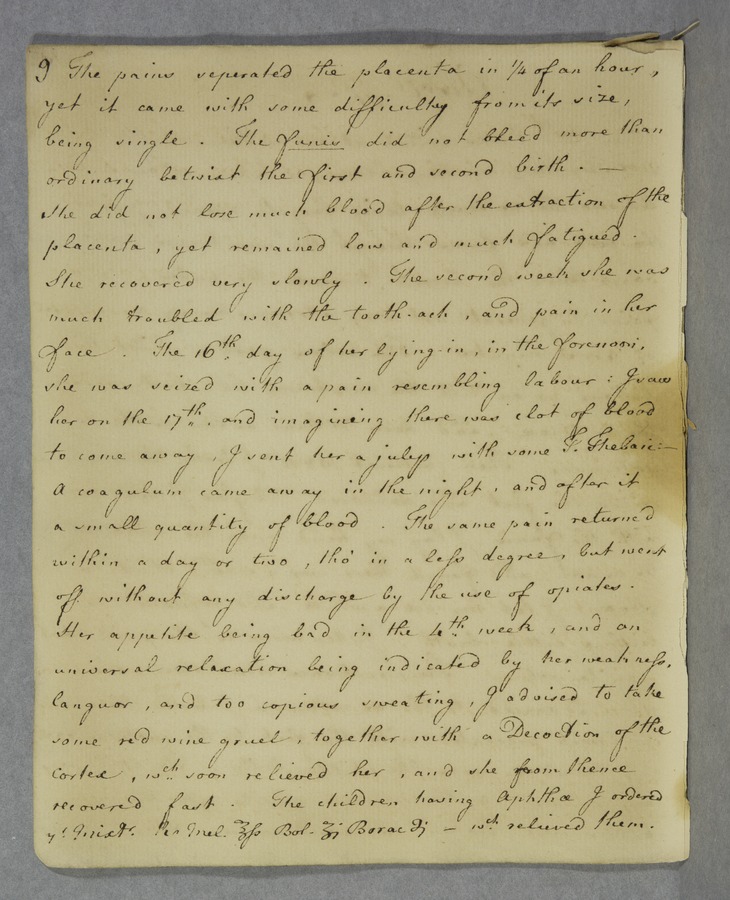 9 The pains seperated the placenta in 1/4 of an hour,
yet it came with some difficulty from its size,
being single. The funis did not bleed more than
ordinary betwixt the first and second birth. —
She did not lose much blood after the extraction of the
placenta, yet remained low and much fatigued.
She recovered very slowly. The second week she was
much troubled with the tooth-ach, and pain in her
face. The 16th. day of her lying-in, in the forenoon,
she was seized with a pain resembling labour: I saw
her on the 17th. and imagining there was clot of blood
to come away, I sent her a julep with some T. Thebaic:—
A coagulum came away in the night, and after it
a small quantity of blood. The same pain returned
within a day or two, tho' in a less degree, but went
off without any discharge by the use of opiates.
Her appetite being bad in the 4th. week, and an
universal relaxation being indicated by her weakness,
languor, and too copious sweating, I advised to take
some red wine gruel, together with a Decoction of the
cortex, wch. soon relieved her, and she from thence
recovered fast. The children having Aphthæ I ordered
yt. Mixtr. Mel. ℥ss Bol. ʒi Borac ℈j — wch. relieved them.